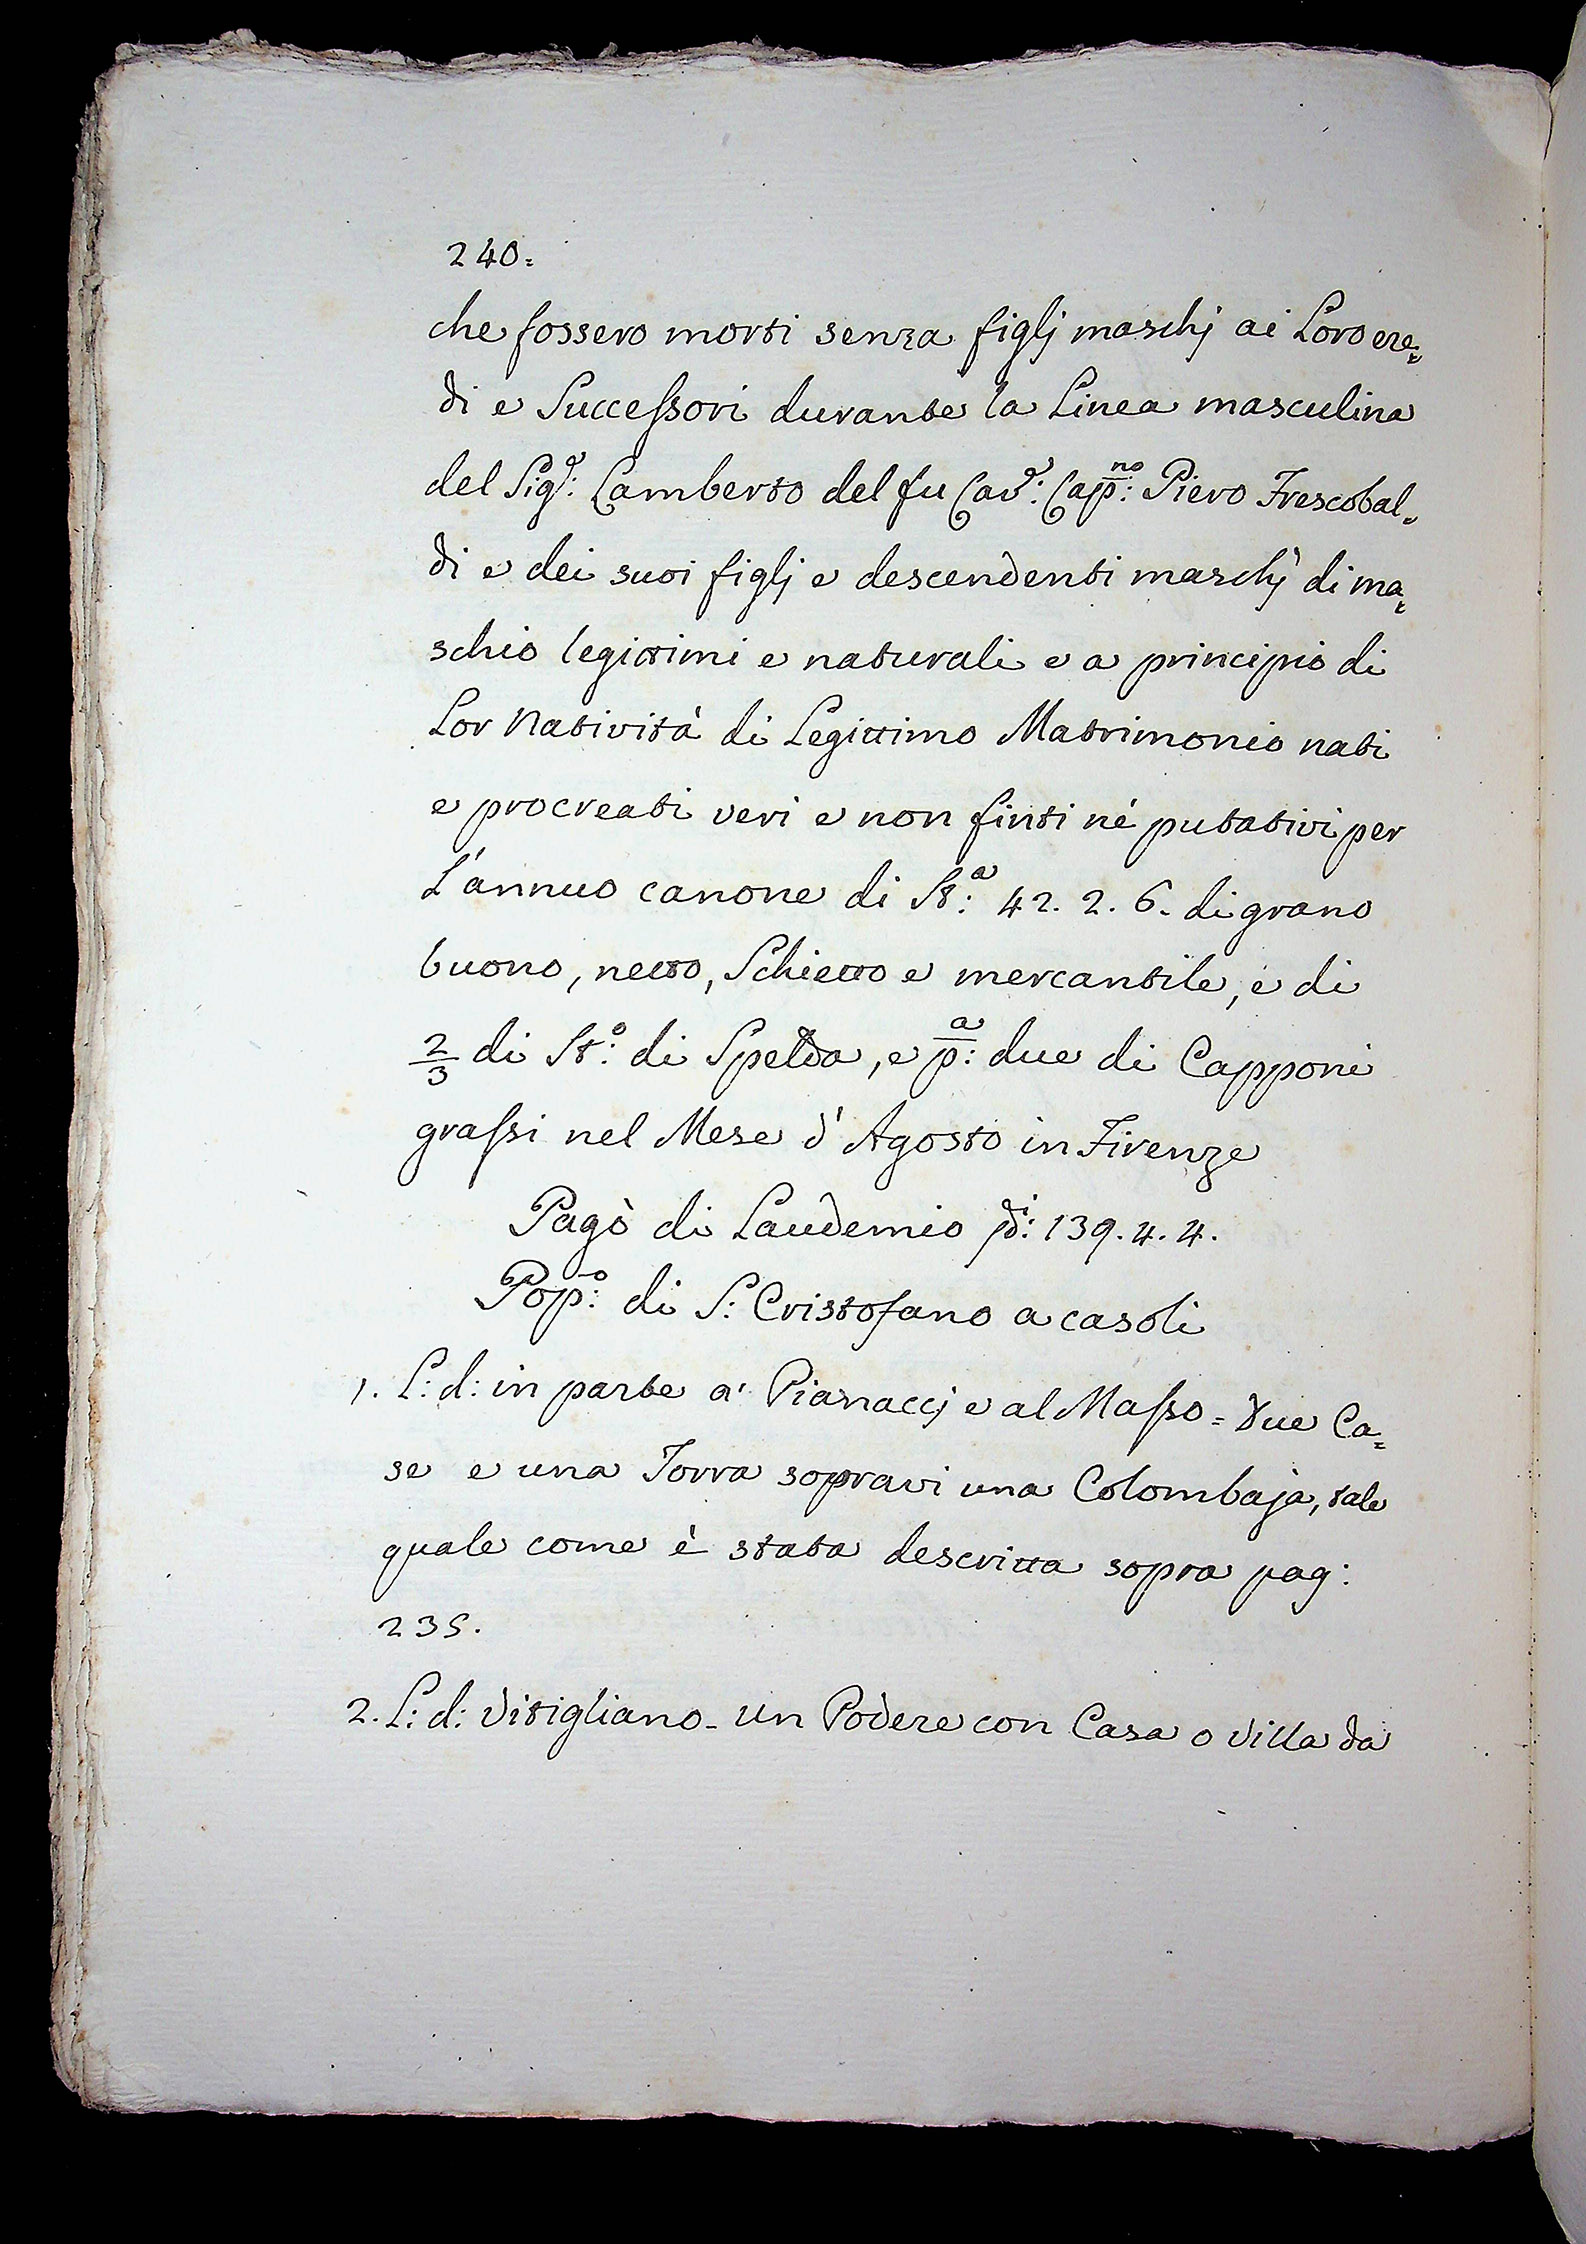 240.
che fossero morti senza figlj maschj ai Loro ere=
di e Successori durante la Linea masculina
del Sig.r: Lamberto del fu Cav.r: Cap.no: Piero Frescobal=
di e dei suoi figlj e descendenti maschj di ma=
schio legittimi e naturali e a principio di
Lor Natività di Legittimo Matrimonio nati
e procreati veri e non finti né putativi per
L'annuo canone di St.a: 42. 2. 6. di grano
buono, netto, Schietto e mercantile, e di
2/3 di St.o: di Spelda, e p.a: due di Capponi
grassi nel Mese d'Agosto in Firenze
Pagò di Laudemio di: 139. 4. 4.
Pop.o: di S: Cristofano a casoli
1. L: d: in parte a' Pianaccj e al Masso = Due Ca=
se e una Torra sopravi una Colombaja, tale
quale come è stata descritta sopra pag:
235.
2. L: d: Vitigliano - un Podere con Casa o Villa da